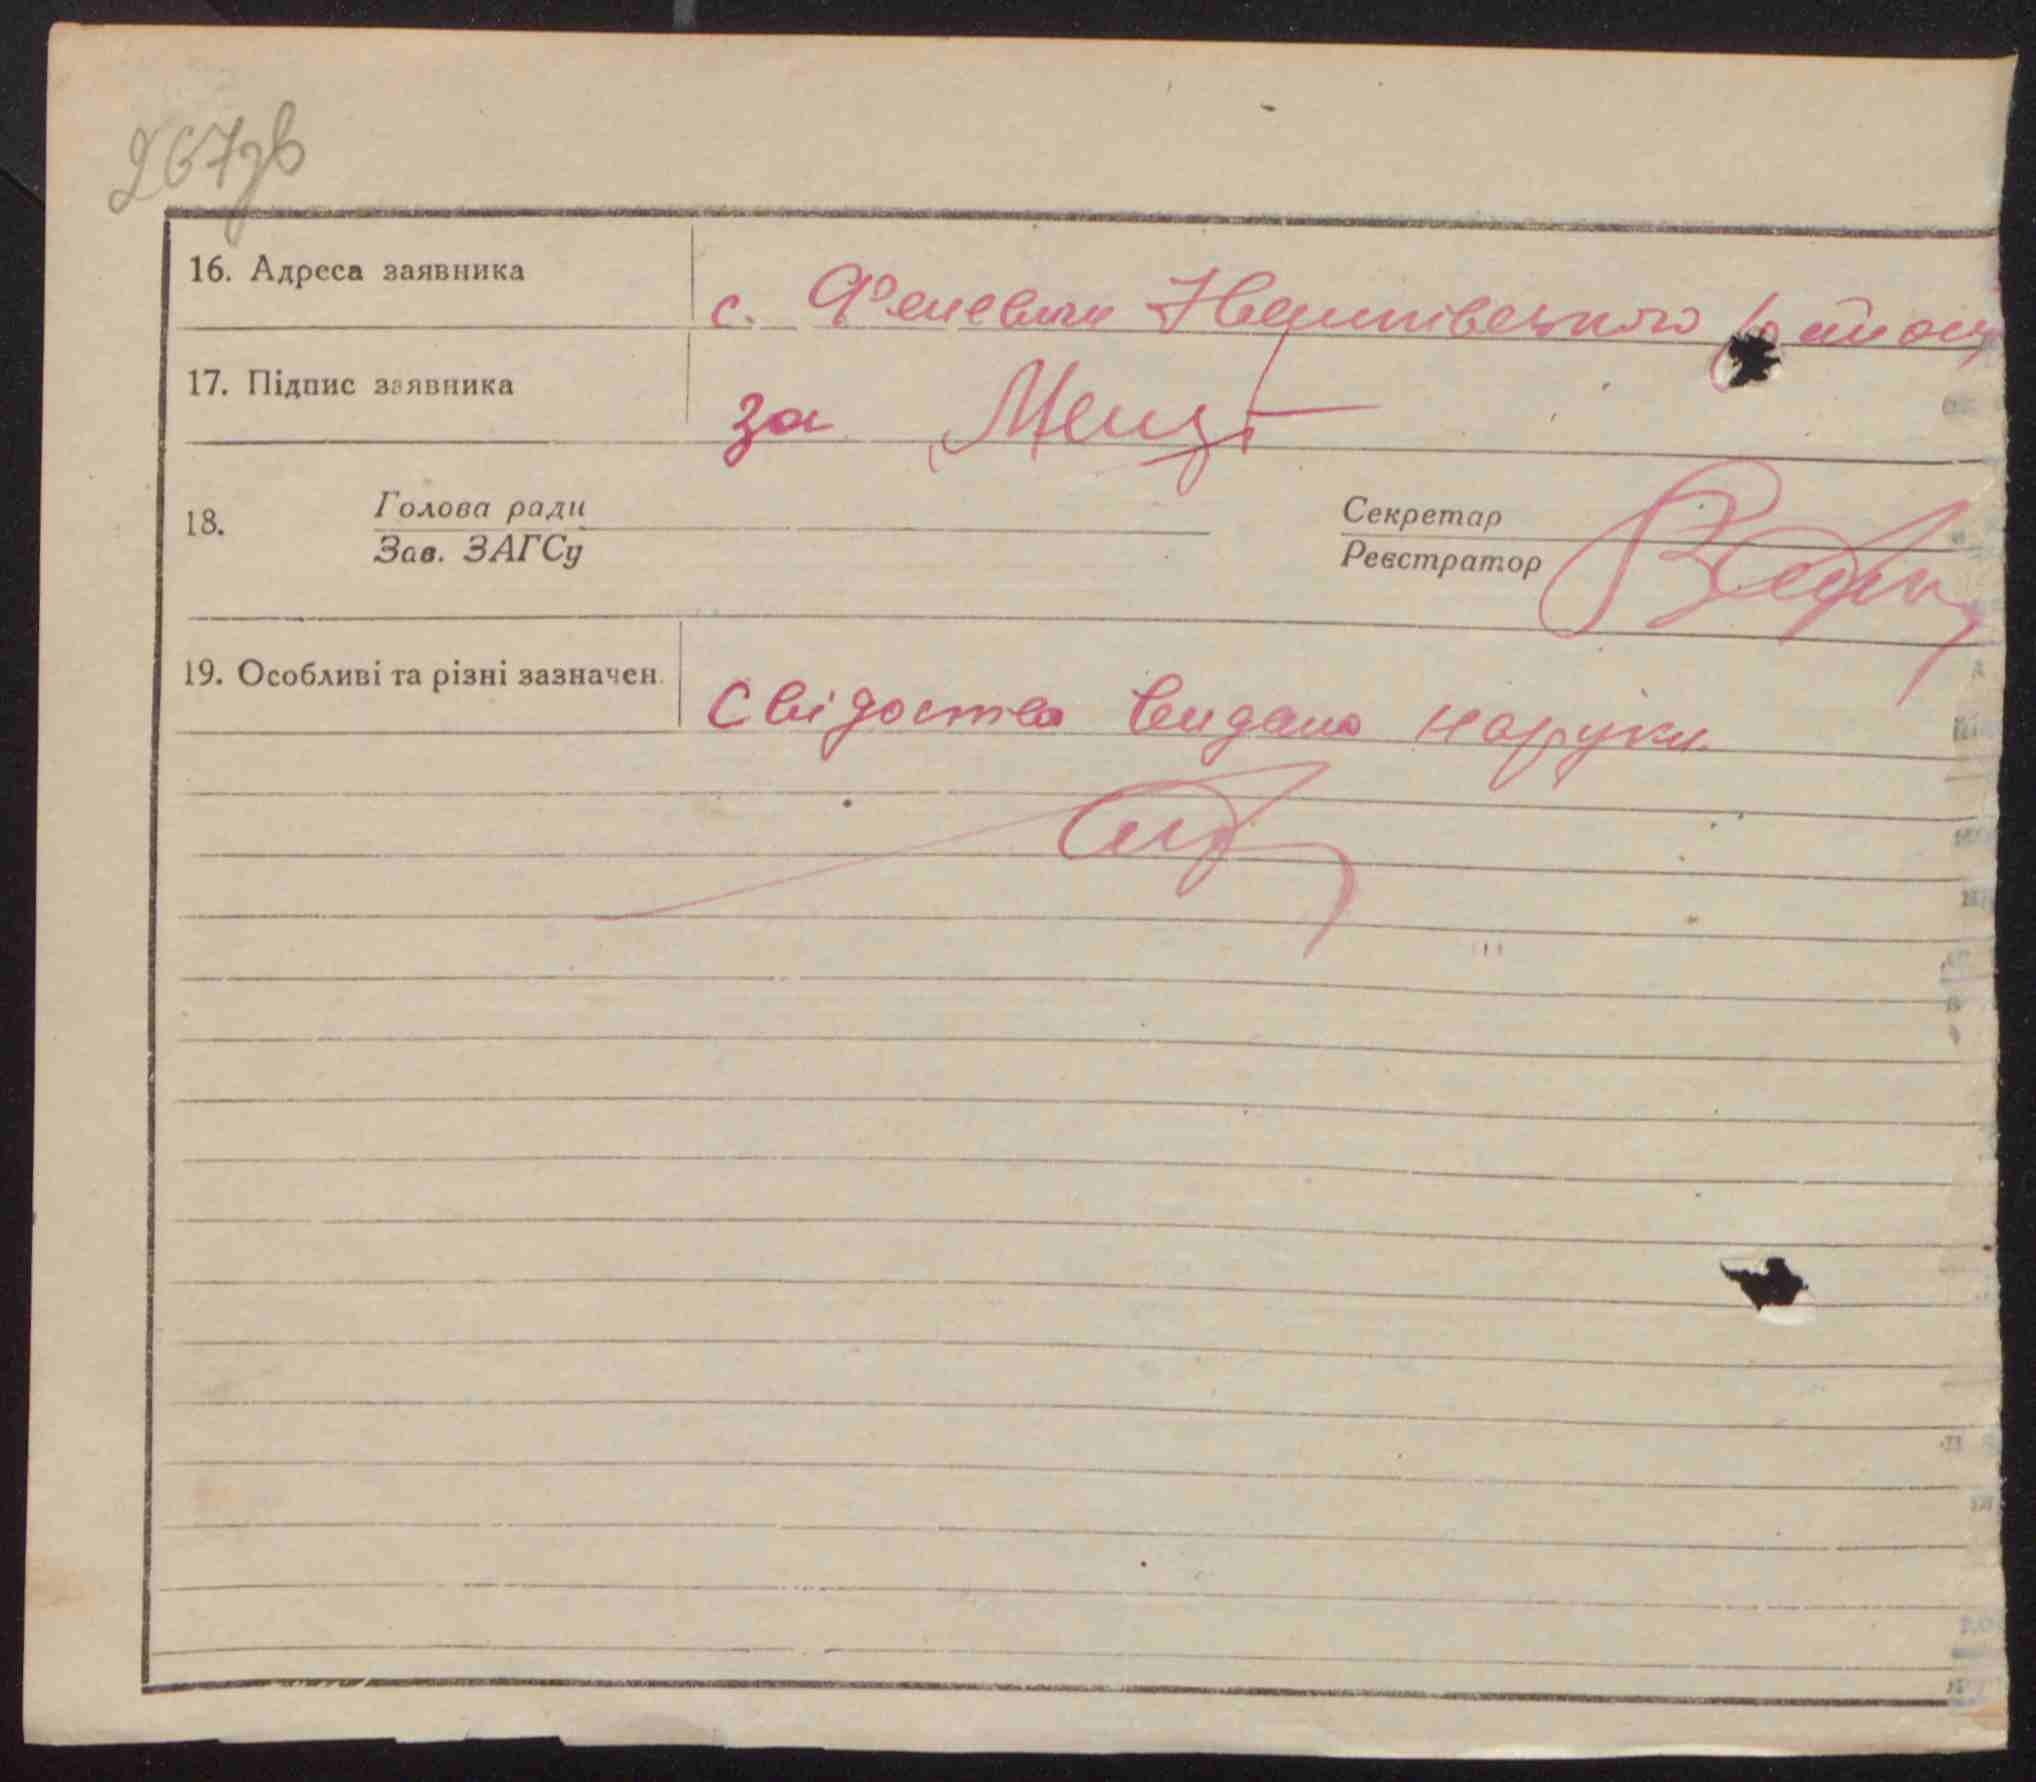 267зв
16. Адреса заявника
с. Феневичи Іванківського району
17. Підпис заявника
за
18.
Голова ради
Зав. ЗАГСу
Секретар
Реєстратор
19. Особливі та різні зазначен.
Свідоство видано наруки